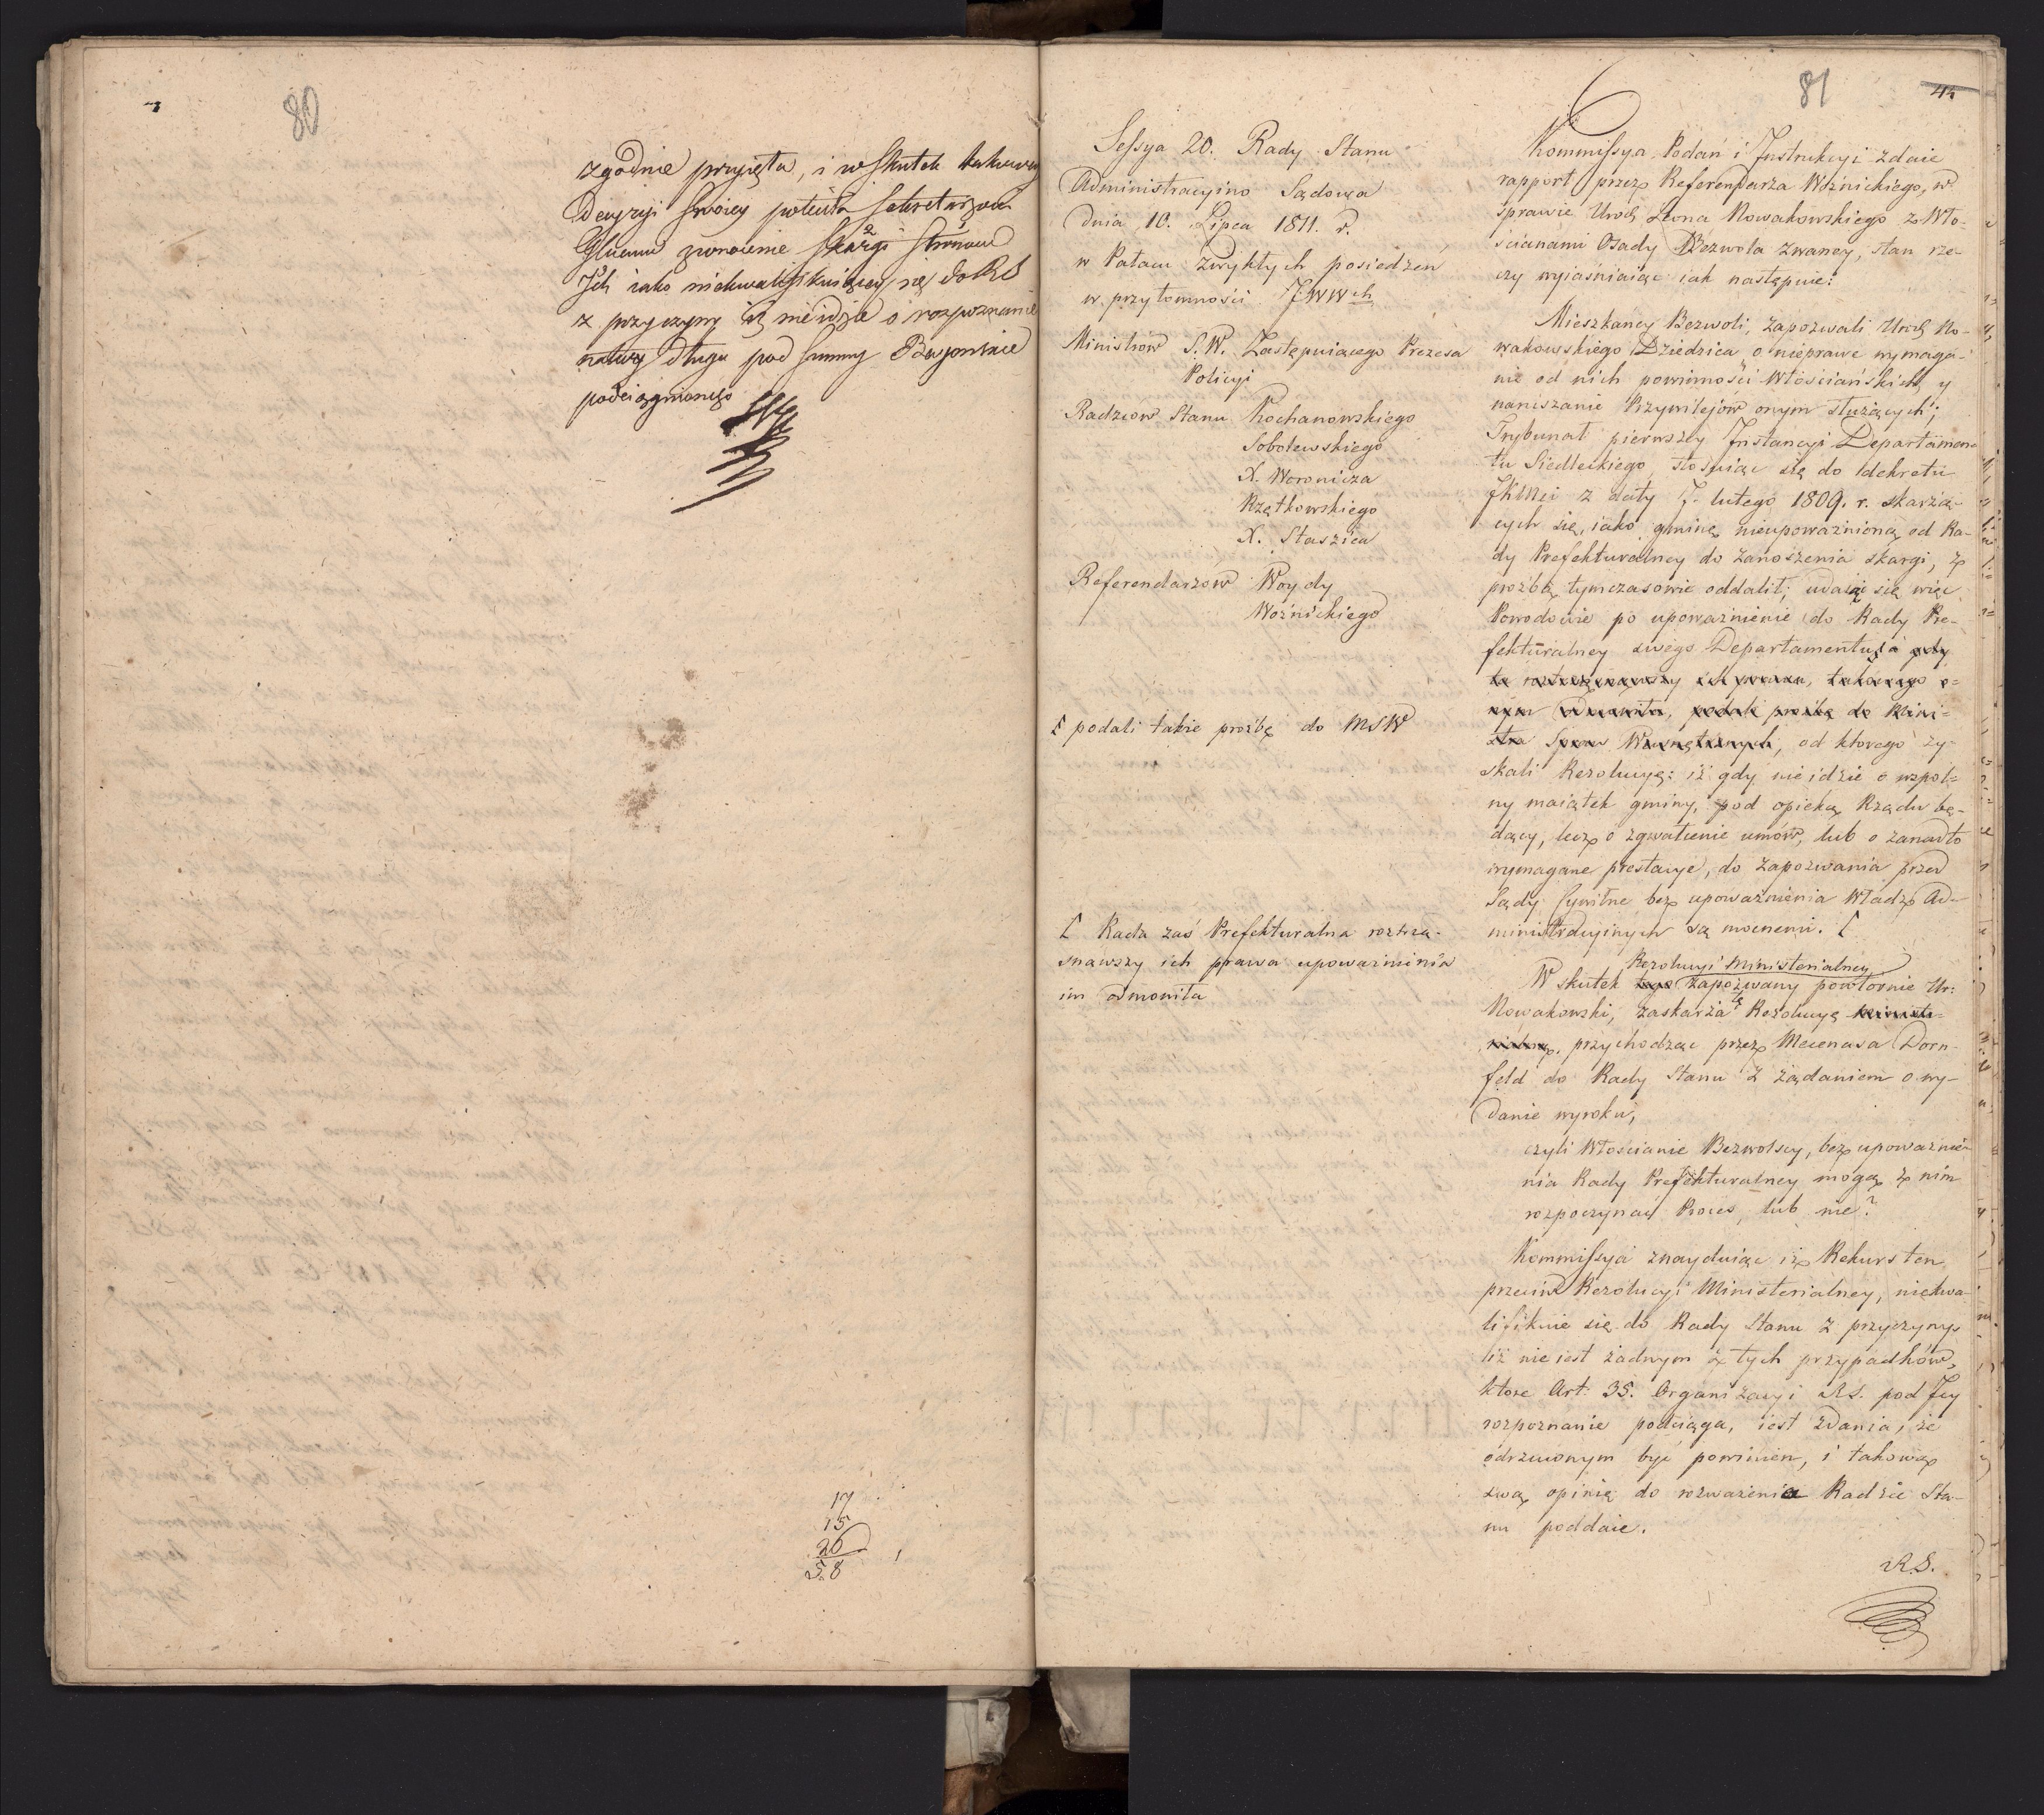 80
zgodnie przyięta, i w skutek takowey
Decyzyi swoiey poleciła Sekretarzowi
Głównemu zwrócenie Skargi Stronom
Ich iako niekwalifikuiącey się do RS
z przyczyny iż nie idzie o rozpoznanie
natury długu pod Summy Bajońskie
podciągnionego
17
15
26
58
81
44
Sessya 20. Rady Stanu
Administracyino Sądowa
dnia 10. Lipca 1811. r.
w Pałacu zwykłych posiedzeń
w przytomności JWWch
Ministrów S.W. Zastępuiącego Prezesa
Policyi
Radzców Stanu Kochanowskiego
Sobolewskiego
X. Woronicza
Rzętkowskiego
X. Staszica
Referendarzów Woydy
Woźnickiego
[ podali takie prośbę do MSW
[ Rada zaś Prefekturalna roztrzą-
snąwszy ich prawa upoważnienia
im odmówiła
Kommissya Podań i Instrukcyi zdaie
rapport przez Referendarza Woźnickiego, w
sprawie Urodz. Leona Nowakowskiego z Wło-
ścianami Osady Bezwola zwaney, stan rze-
czy wyiaśniaiąc iak następuie:
Mieszkańcy Bezwoli, zapozwali Urodz. No-
wakowskiego Dziedzica, o nieprawe wymaga-
nie od nich powinności Włościańskich, y
naruszanie Przywilejów onym służących;
Trybunał pierwszey Instancyi Departamen-
tu Siedleckiego, stosuiąc się do dekretu
JKMci z daty 7. lutego 1809. r. skarżą-
cych się, iako gminę nieupoważnioną od Ra-
dy Prefekturalney do zanoszenia skargi, z
prośbą tymczasowie oddalił; udaiąc się więc
Powodowie po upoważnienie do Rady Pre-
fekturalney swego Departamentu, a gdy
ta roztrząsnąwszy ich prawa, takowego o-
nym odmówiła, podali prośbę do Mini-
stra Spraw Wewnętrznych, od ktorego zy-
skali Rezolucyę: iż gdy nie idzie o wspól-
ny maiątek gminy, pod opieką Rządu bę-
dący, lecz o zgwałcenie umów, lub o zanadto
wymagane prestacye, do zapozwania przed
Sądy Cywilne bez upoważnienia Władz Ad-
ministracyinych są mocnemi. [
Rezolucyi Ministerialney
W skutek tego zapozwany powtórnie Ur:
Nowakowski, zaskarża tę Rezolucyę ministe-
rialną, przychodząc przez Mecenasa Dorn-
feld do Rady Stanu z żądaniem o wy-
danie wyroku,
czyli Włościanie Bezwolscy, bez upoważnie-
nia Rady Prefekturalney mogą z nim
rozpoczynać Proces, lub nie?
Kommissya znayduiąc iż Rekurs ten
przeciw Rezolucyi Ministerialney, niekwa-
lifikuie się do Rady Stanu z przyczyny,
iż nie iest żadnym z tych przypadków,
ktore Art: 35. Organizacyi RS. pod Jey
rozpoznanie podciąga, iest zdania, że
odrzuconym być powinien, i takową
swą opinię do rozważenia Radzie Sta-
nu poddaie.
R.S.